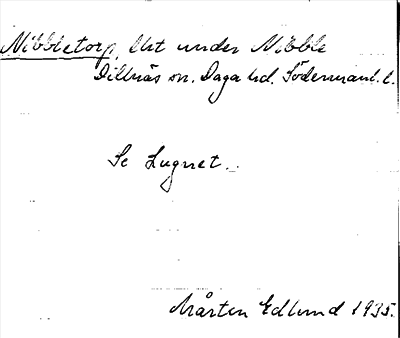 Nibbletorp, lht under Nibble
Dillnäs sn. Daga hd. Södermanl. l.
Se Lugnet.
Mårten Edlund 1935.